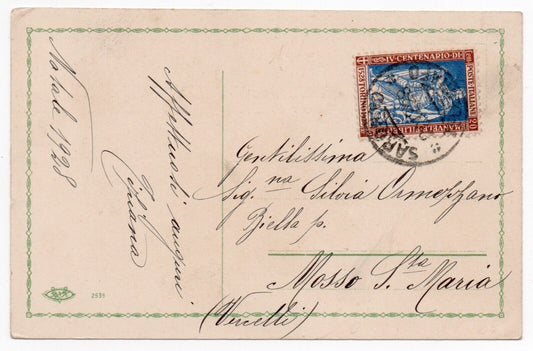 Natale 1928
Affettuosi auguri
Gentilissima
Sig.na Silvia Ormezzano
Biella p.
Mosso Sta Maria
(Vercelli)
2535
IV·CENTENARIO·DI·
EMANVELE·FILIBERTO
POSTE·ITALIANE
1528 TORINO 1928
20